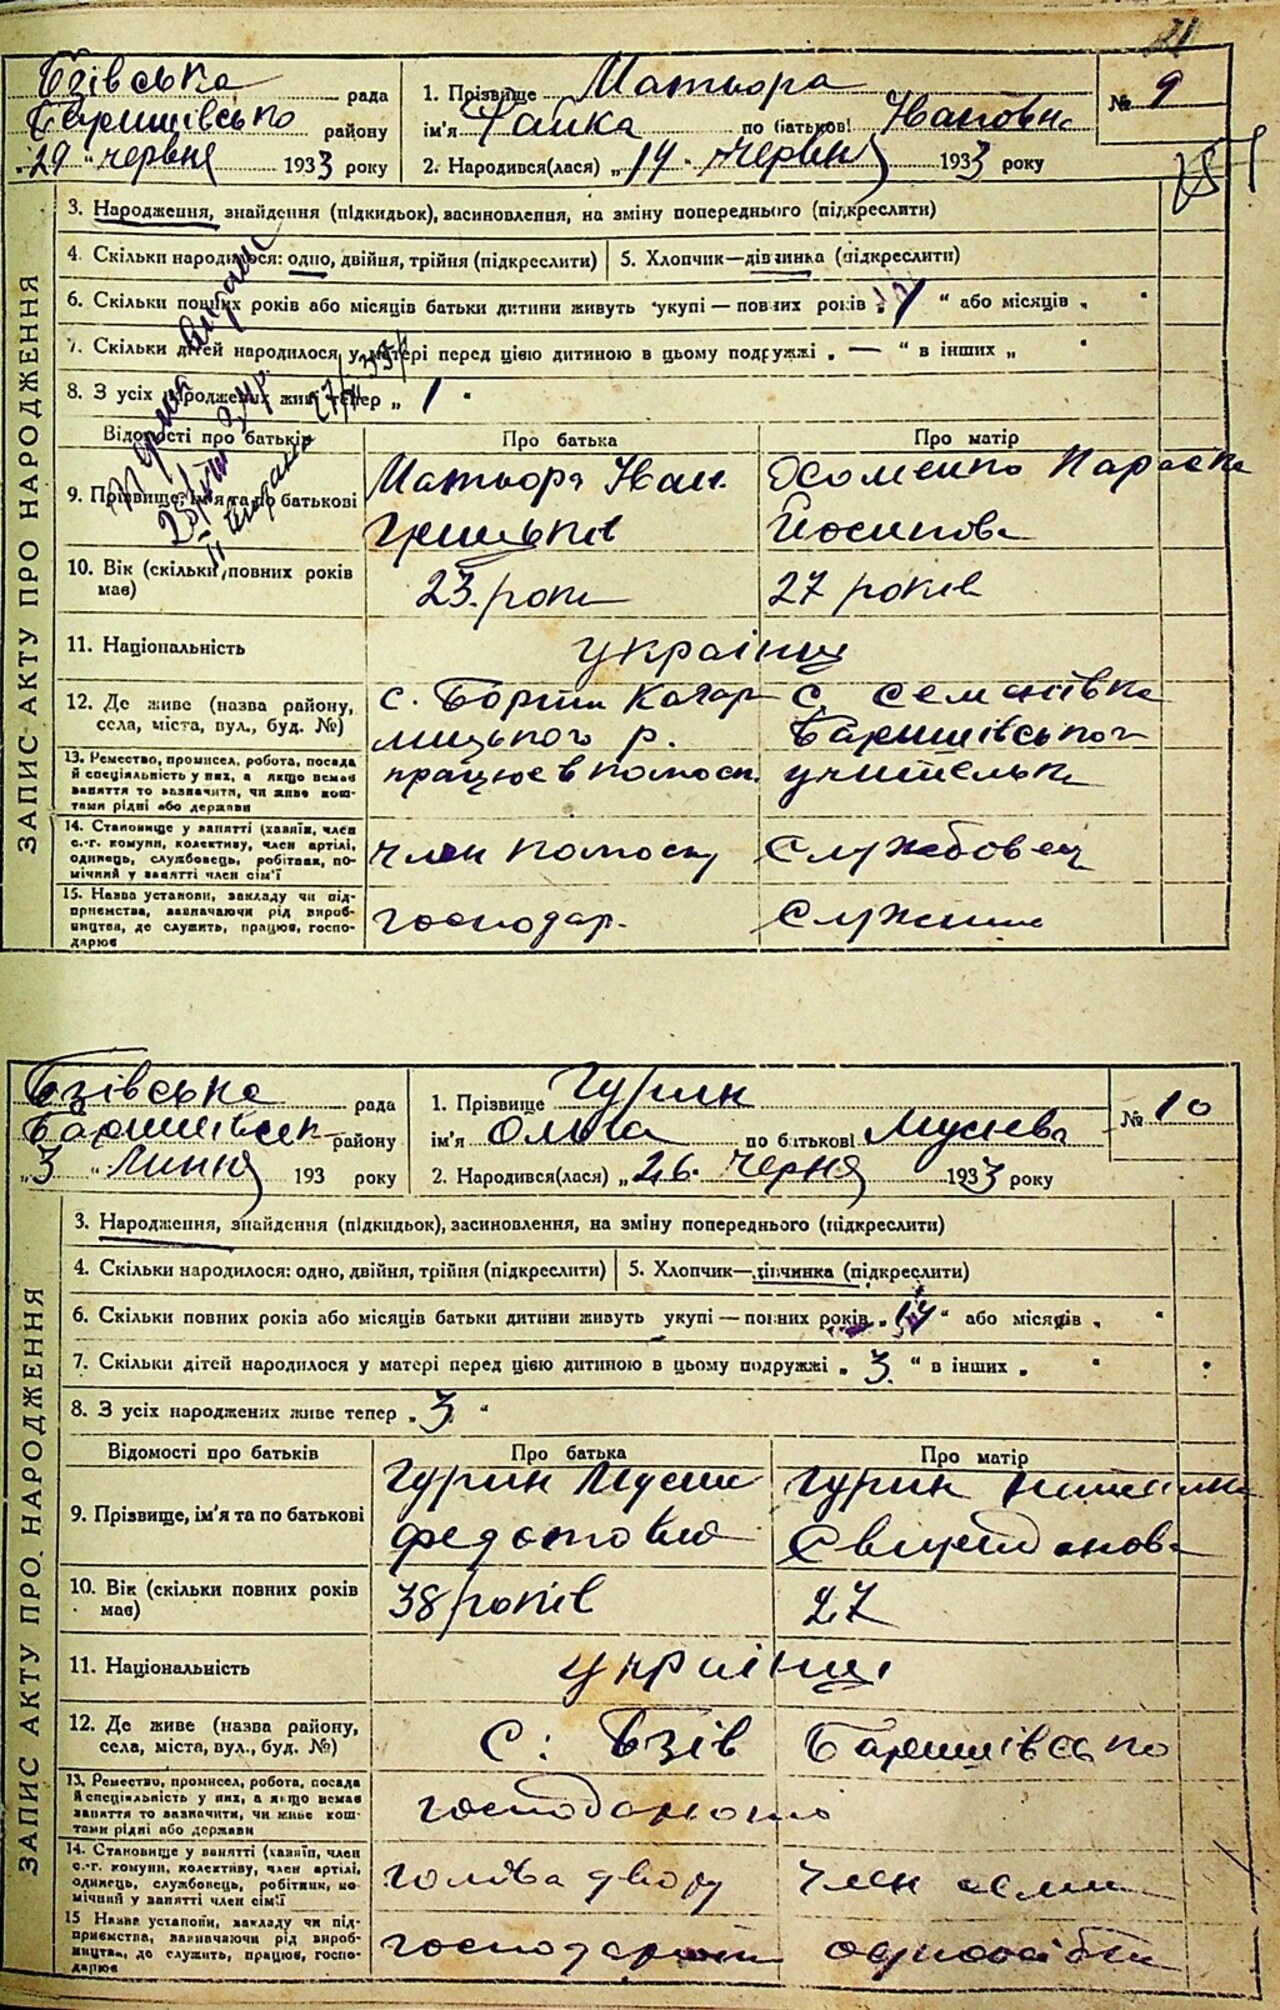 Бзівська рада
Баришівсько району
„29 „ червня 1933 року
1. Прізвище Матьора
ім'я Раїка по батькові Івановна
2. Народився(лася) „14 „ червня 1933 року
№ 9
ЗАПИС АКТУ ПРО НАРОДЖЕННЯ
3. Народження, знайдення (підкидьок), засиновлення, на зміну попереднього (підкреслити)
4. Скільки народилося: одно, двійня, трійня (підкреслити)
5. Хлопчик—дівчинка (підкреслити)
6. Скільки повних років або місяців батьки дитини живуть укупі — повних років „1 “ або місяців „ “
7. Скільки дітей народилося у матері перед цією дитиною в цьому подружжі „ — “ в інших „ “
8. З усіх народжених живе тепер „ 1 “
Відомості про батьків
Про батька
Про матір
9. Прізвище, ім'я та по батькові
Матьора Іван.
Грицьків
Хоменко Параска
Йосипова
10. Вік (скільки повних років
має)
23. роки
27 років
11. Національність
українці
12. Де живе (назва району,
села, міста, вул., буд. №)
с. Бортни Кагар
лицького р.
с. Семенівка
Баришівського
13. Ремество, промисел, робота, посада
й спеціальність у них, а якщо немає
заняття то зазначити, чи живе кош-
тами рідні або держави
працює в колгосп.
учителька
14. Становище у занятті (хазяїн, член
с.-г. комуни, колективу, член артілі,
одинець, службовець, робітник, по-
мічний у занятті член сім'ї
член колгоспу
Службовец
15. Назва установи, закладу чи під-
приємства, зазначаючи рід вироб-
ництва, де служить, працює, госпо-
дарює
господар.
Служит
Бзівська рада
Баришівськ району
„3 „ Липня 193 року
1. Прізвище Гурин
ім'я Ольга по батькові Мусієва
2. Народився(лася) „26. червня 1933 року
№ 10
ЗАПИС АКТУ ПРО НАРОДЖЕННЯ
3. Народження, знайдення (підкидьок), засиновлення, на зміну попереднього (підкреслити)
4. Скільки народилося: одно, двійня, трійня (підкреслити)
5. Хлопчик—дівчинка (підкреслити)
6. Скільки повних років або місяців батьки дитини живуть укупі — повних років „14 “ або місяців „ “
7. Скільки дітей народилося у матері перед цією дитиною в цьому подружжі „ 3. “ в інших „ “
8. З усіх народжених живе тепер „ 3. “
Відомості про батьків
Про батька
Про матір
9. Прізвище, ім'я та по батькові
Гурин Мусій
Федотовий
Гурин
10. Вік (скільки повних років
має)
38 років
27
11. Національність
українці
12. Де живе (назва району,
села, міста, вул., буд. №)
С. Бзів Баришівсько
13. Ремество, промисел, робота, посада
й спеціальність у них, а якщо немає
заняття то зазначити, чи живе кош-
тами рідні або держави
господарюють
14. Становище у занятті (хазяїн, член
с.-г. комуни, колективу, член артілі,
одинець, службовець, робітник, по-
мічний у занятті член сім'ї
голова двору
член семи
15 Назва установи, закладу чи під-
приємства, зазначаючи рід вироб-
ництва, де служить, працює, госпо-
дарює
господарют одноосібни